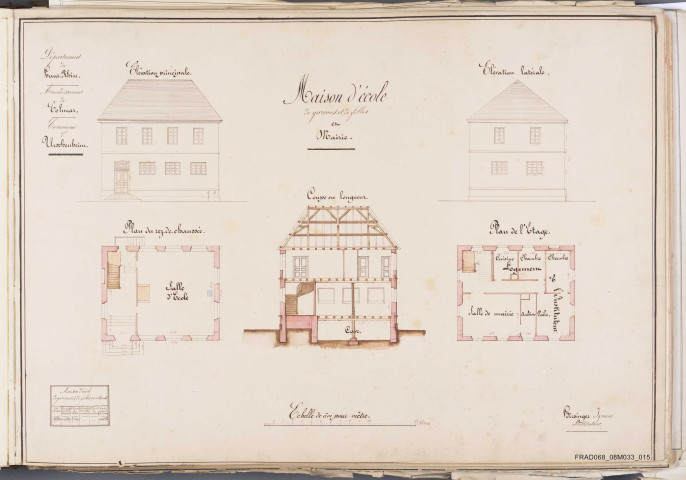 Département
du
Haut-Rhin.
Arrondissement
de
Colmar.
Commune
d'
Urschenheim.
Maison d'école
de garçons et de filles
et
Mairie.
Elévation principale.
Elévation latérale.
Coupe en longueur.
Plan du rez-de-chaussée.
Salle
d'Ecole
Cave.
Plan de l'Etage.
Cuisine Chambre Chambre
Logement
de l'Instituteur
Salle de mairie
Maison d'école
Echelle de 0,01 pour mètre.
FRAD068_08M033_015